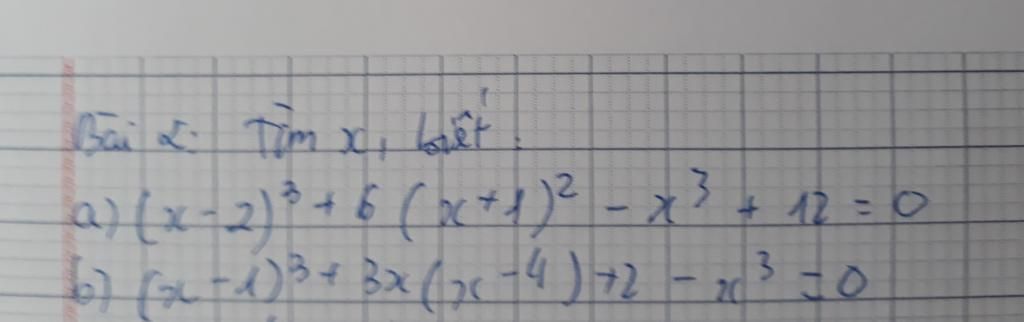 Bài 2: Tìm x, biết:
a) (x - 2)³ + 6 (x + 1)² - x³ + 12 = 0
b) (x - 1)³ + 3x (x - 4) + 2 - x³ = 0